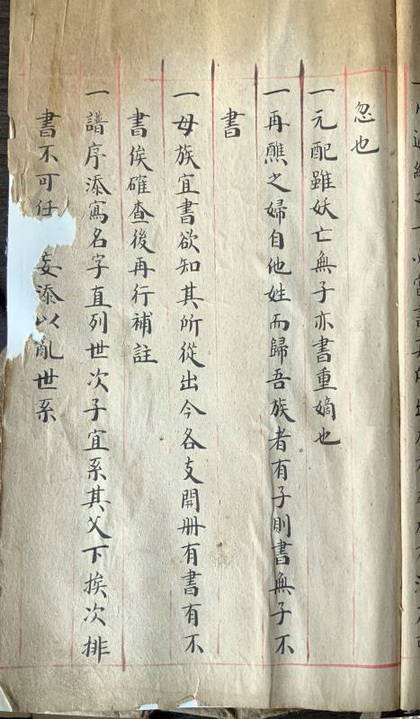 忽也
一元配雖妖亡無子亦書重嫡也
一再醮之婦自他姓而歸吾族者有子則書無子不
書
一母族宜書欲知其所從出今各支開册有書有不
書俟確查後再行補註
一譜序添寫名字直列世次子宜系其父下挨次排
書不可任妄添以亂世系